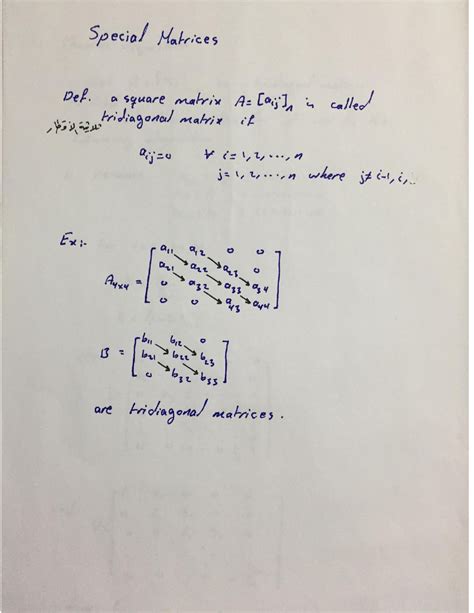 Special Matrices
Def. a square matrix A=[aij]n is called
tridiagonal matrix if
ثلاثية الأقطار
aij=0 ∀ i=1,2,...,n
j=1,2,...,n where j≠i-1,i,
Ex:-
a11 a12 0 0
a21 a22 a23 0
A4x4 = 0 a32 a33 a34
0 0 a43 a44
b11 b12 0
B = b21 b22 b23
0 b32 b33
are tridiagonal matrices.